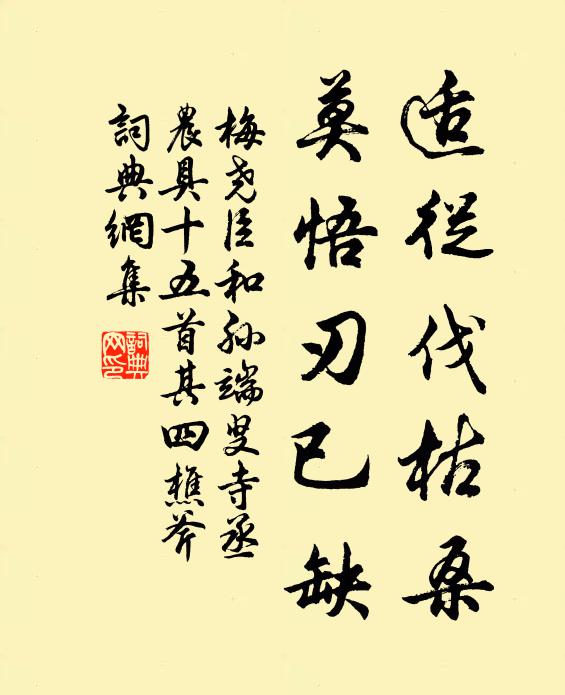 适從伐枯桑
莫悟刃已缺
梅尧臣和孙端叟寺丞
農具十五首其四樵斧
詞典網集
詞典网印